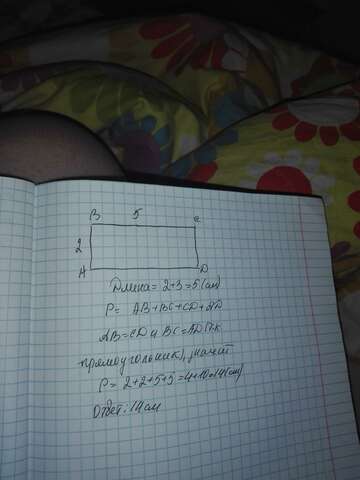 B 5 C
2
A D
Длина = 2+3=5(см)
P= AB+BC+CD+AD
AB=CD и BC=AD(т.к
прямоугольник), значит
P= 2+2+5+5=4+10=14(см)
Ответ: 14см